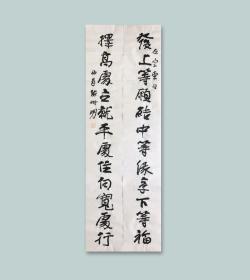 左宗棠句
發上等願結中等緣享下等福
擇高處立就平處住向寬處行